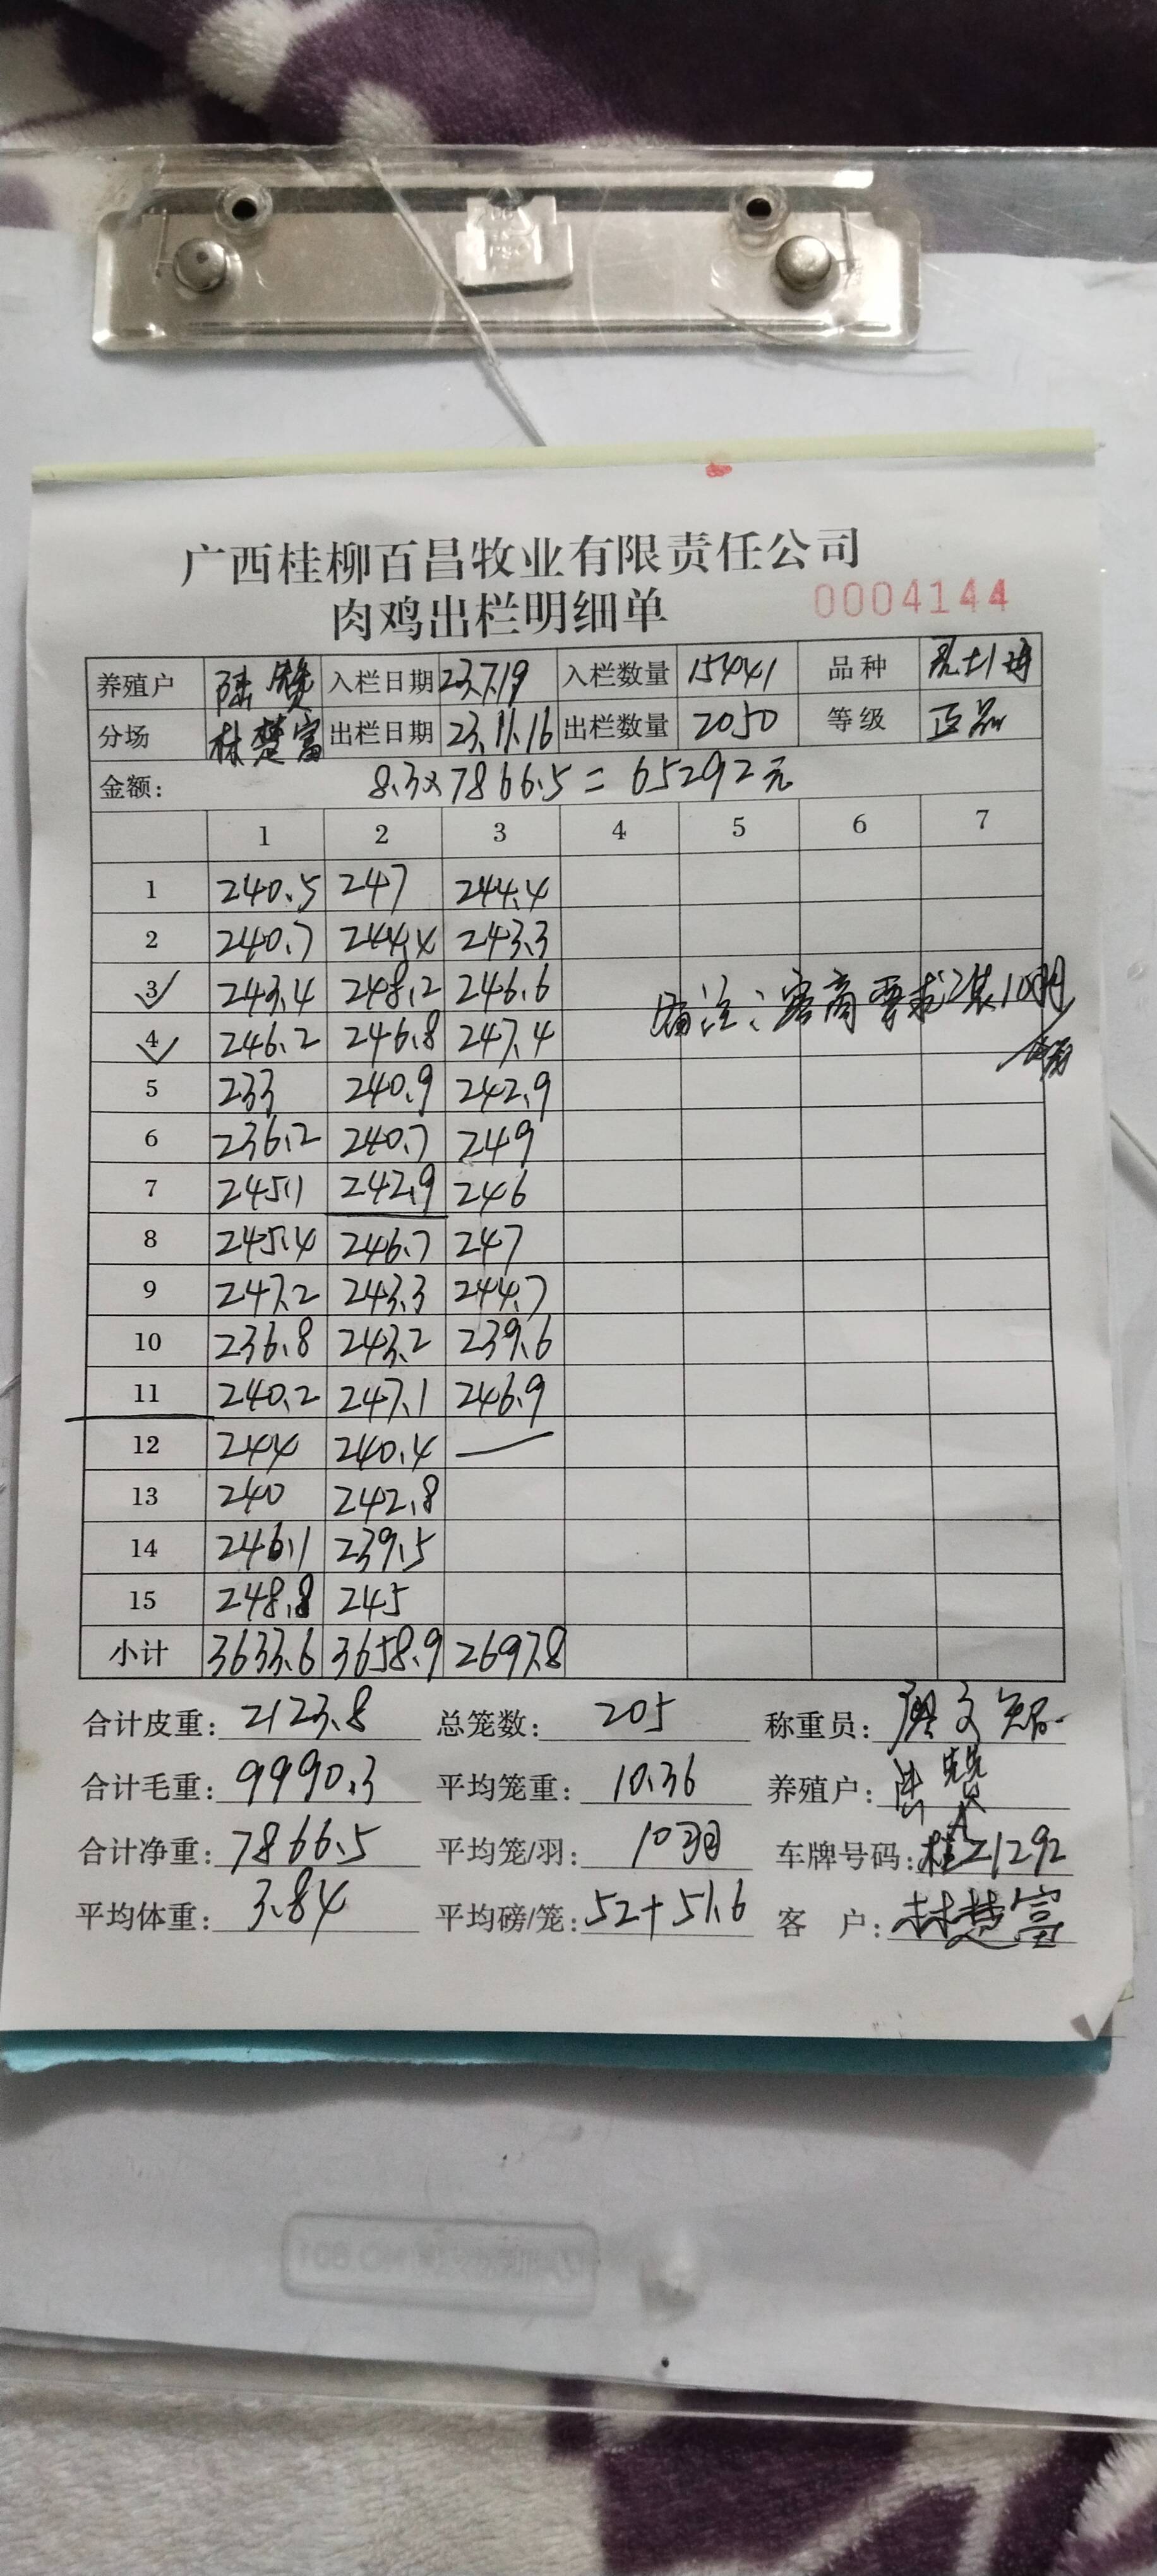 广西桂柳百昌牧业有限责任公司
肉鸡出栏明细单 0004144
养殖户 陆赞 入栏日期 23.7.19 入栏数量 15441 品种
分场 林楚富 出栏日期 23.11.16 出栏数量 2050 等级 正品
金额: 8.3×7866.5=65292元
1 2 3 4 5 6 7
1 240.5 247 244.4
2 240.7 244.4 243.3
3 243.4 248.2 246.6
备注:客商要求装10羽
4 246.2 246.8 247.4
5 233 240.9 242.9
6 236.2 240.7 249
7 245.1 242.9 246
8 245.4 246.7 247
9 247.2 243.3 244.7
10 236.8 243.2 239.6
11 240.2 247.1 246.9
12 244 240.4 —
13 240 242.8
14 246.1 239.5
15 248.8 245
小计 3633.6 3658.9 2697.8
合计皮重: 2123.8 总笼数: 205 称重员:
合计毛重: 9990.3 平均笼重: 10.36 养殖户: 陆赞
合计净重: 7866.5 平均笼/羽: 10羽 车牌号码: 桂A Z1292
平均体重: 3.84 平均磅/笼: 52+51.6 客 户: 林楚富